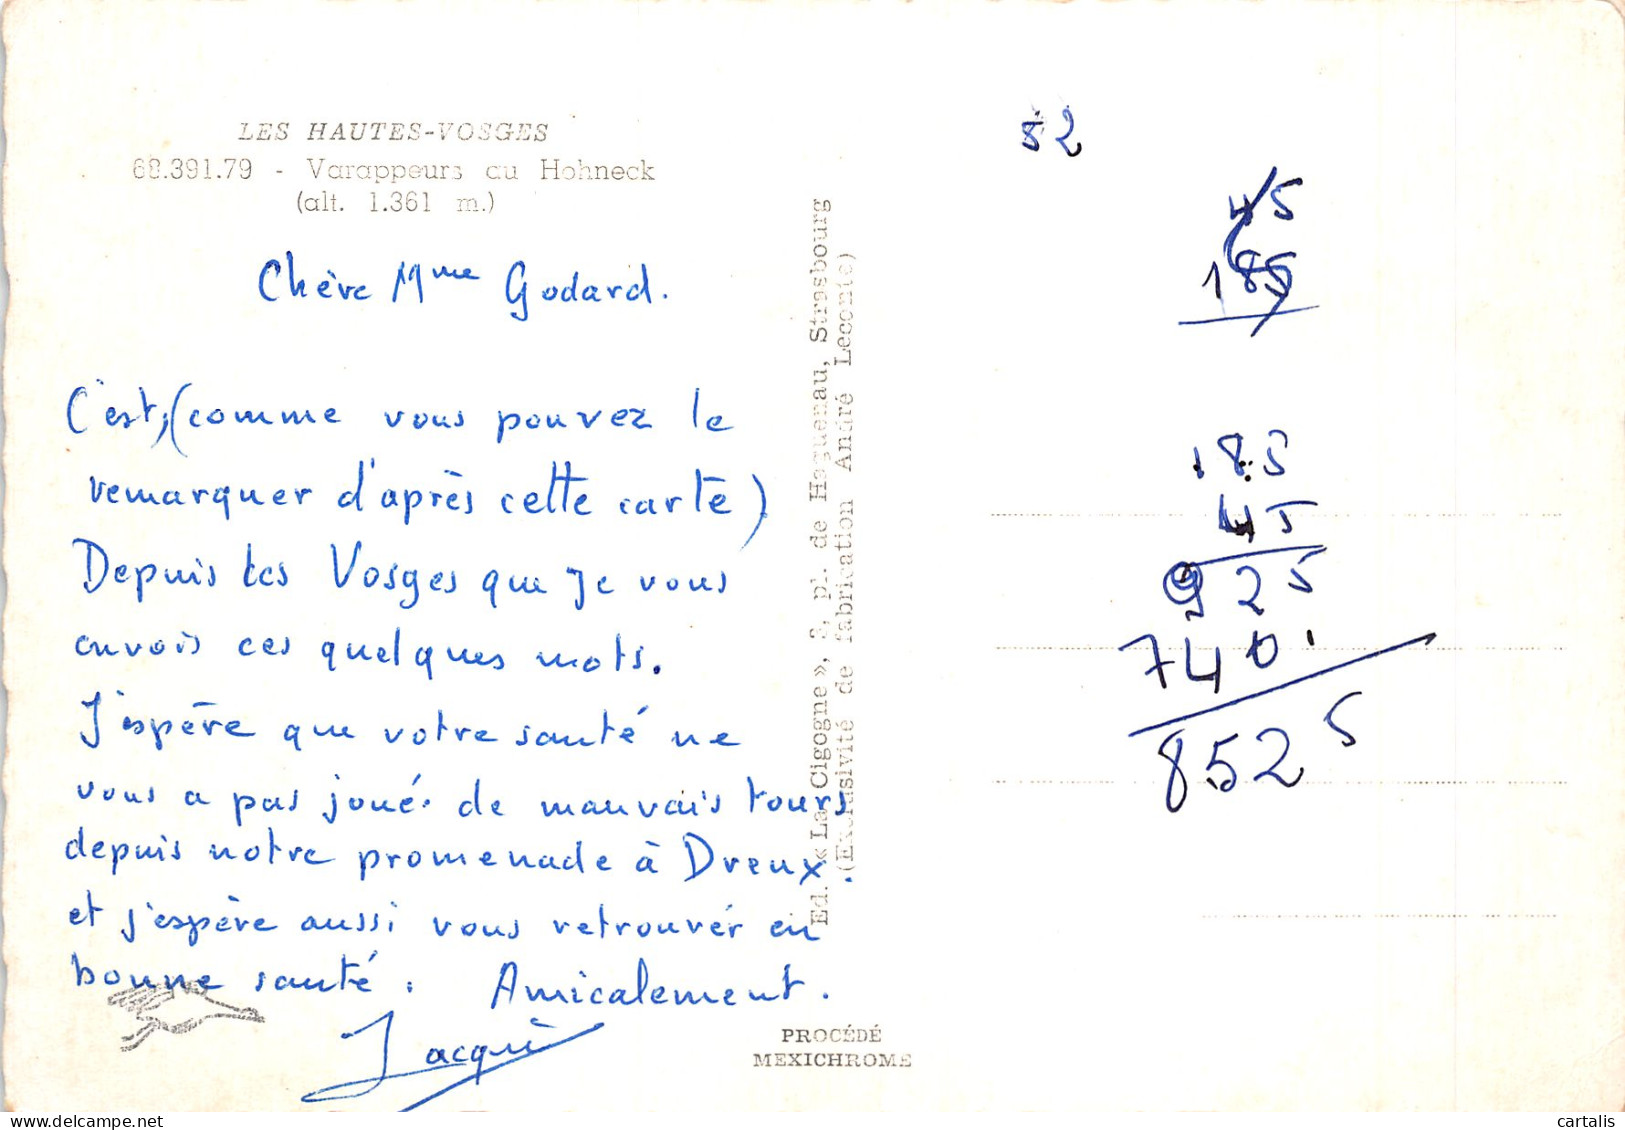 LES HAUTES-VOSGES
68.391.79 - Varappeurs au Hohneck
(alt. 1.361 m.)
Chère Mme Godard.
C'est, (comme vous pouvez le
remarquer d'après cette carte)
Depuis les Vosges que je vous
envois ces quelques mots.
J'espère que votre santé ne
vous a pas joué de mauvais tours
depuis notre promenade à Dreux.
et j'espère aussi vous retrouver en
bonne santé. Amicalement.
Jacqui
Ed. « La Cigogne », 3, pl. de Haguenau, Strasbourg
(Exclusivité de fabrication André Leconte)
PROCÉDÉ
MEXICHROME
82
45
185
185
45
925
740.
8525
cartalis